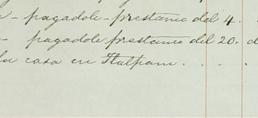 - pagadole - prestamo del 4.
- pagadole prestamo del 20. d
la casa en Tlalpam . . . .